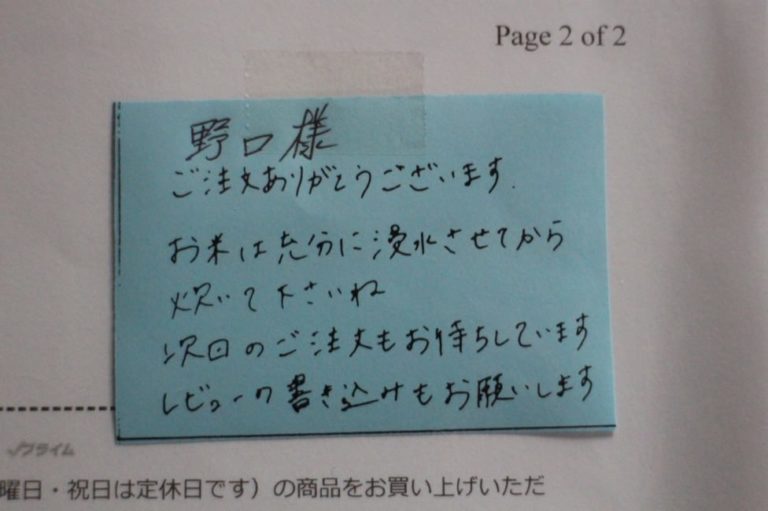 Page 2 of 2
野口様
ご注文ありがとうございます.
お米は充分に浸水させてから
炊いて下さいね
次回のご注文もお待ちしています
レビューの書き込みもお願いします
√プライム
曜日・祝日は定休日です）の商品をお買い上げいただ